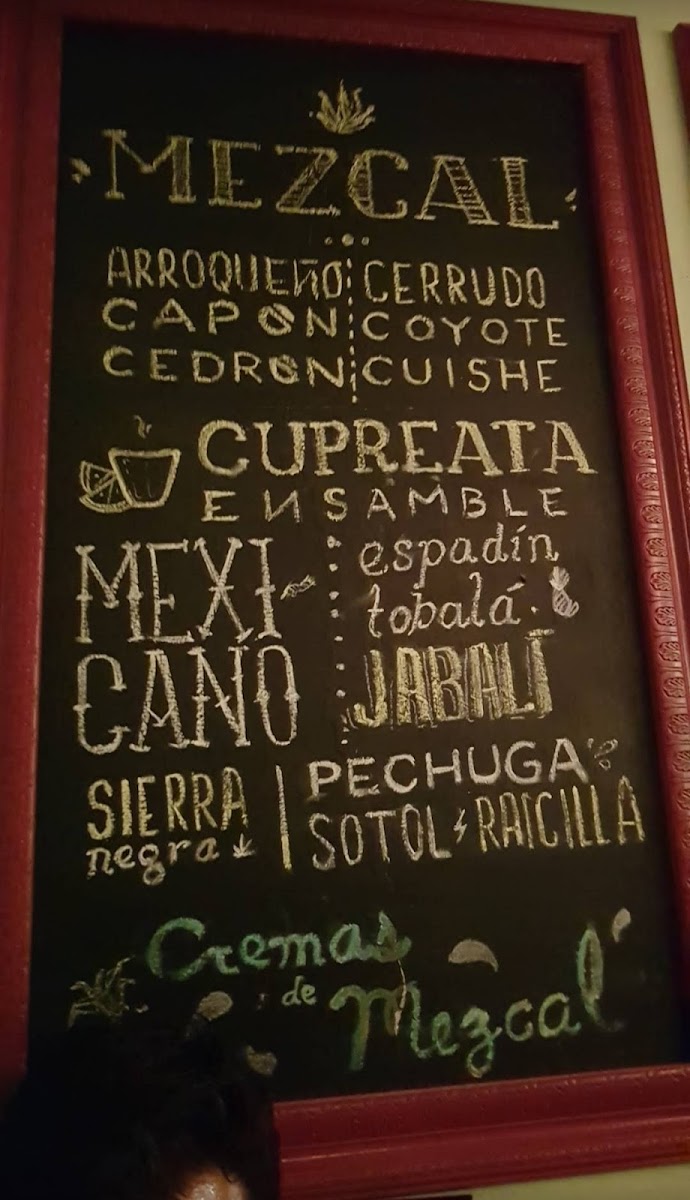 MEZCAL
ARROQUEÑO CERRUDO
CAPÓN COYOTE
CEDRÓN CUISHE
CUPREATA
ENSAMBLE
MEXI
CANO
espadín
tobalá
JABALÍ
SIERRA
negra
PECHUGA
SOTOL RAICILLA
Cremas
de Mezcal